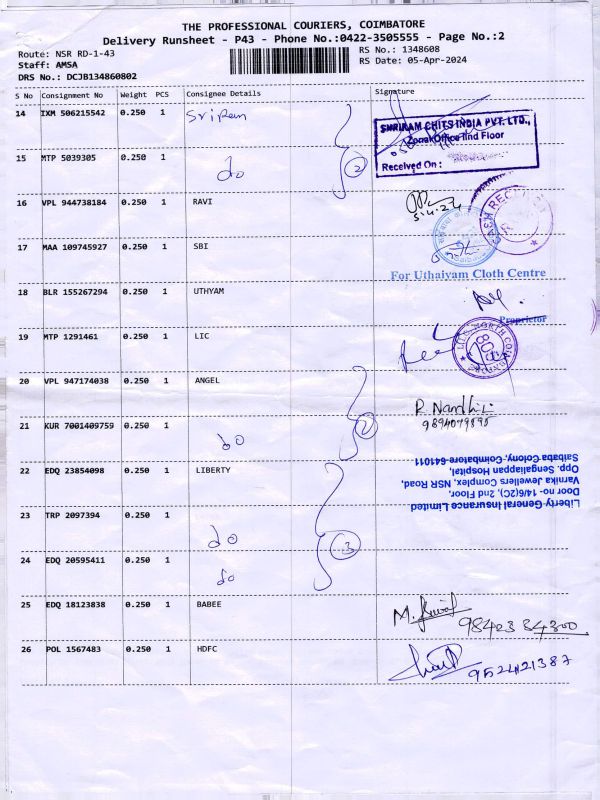 THE PROFESSIONAL COURIERS, COIMBATORE
Delivery Runsheet - P43 - Phone No.:0422-3505555 - Page No.:2
Route: NSR RD-1-43
RS No.: 1348608
Staff: AMSA
RS Date: 05-Apr-2024
DRS No.: DCJB134860802
S No Consignment No Weight PCS Consignee Details Signature
14 IXM 506215542 0.250 1 Sriram
SHRIRAM CHITS INDIA PVT. LTD.,
Zonal Office IInd Floor
Received On :
15 MTP 5039305 0.250 1 do 2
16 VPL 944738184 0.250 1 RAVI
5.4.24
CASH
17 MAA 109745927 0.250 1 SBI
For Uthaiyam Cloth Centre
18 BLR 155267294 0.250 1 UTHYAM
Proprietor
19 MTP 1291461 0.250 1 LIC
20 VPL 947174038 0.250 1 ANGEL
R. Nandhini
9894079895
21 KUR 7001409759 0.250 1 do 2
22 EDQ 23854098 0.250 1 LIBERTY
Liberty General Insurance Limited
Door no- 14/6(2C), 2nd Floor,
Varnika Jewellers Complex, NSR Road,
Opp. Sengaliappan Hospital,
Saibaba Colony, Coimbatore-641011
23 TRP 2097394 0.250 1 do 3
24 EDQ 20595411 0.250 1 do
25 EDQ 18123838 0.250 1 BABEE
9842334300
26 POL 1567483 0.250 1 HDFC
9524121387